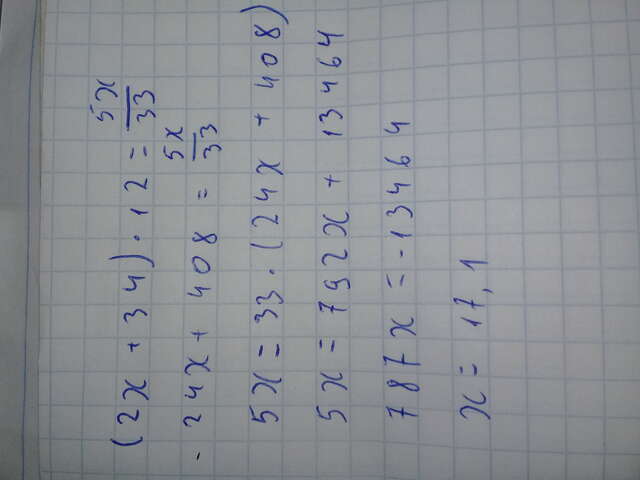 (2x + 34) · 12 = 5x/33
24x + 408 = 5x/33
5x = 33 · (24x + 408)
5x = 792x + 13464
787x = -13464
x = 17,1